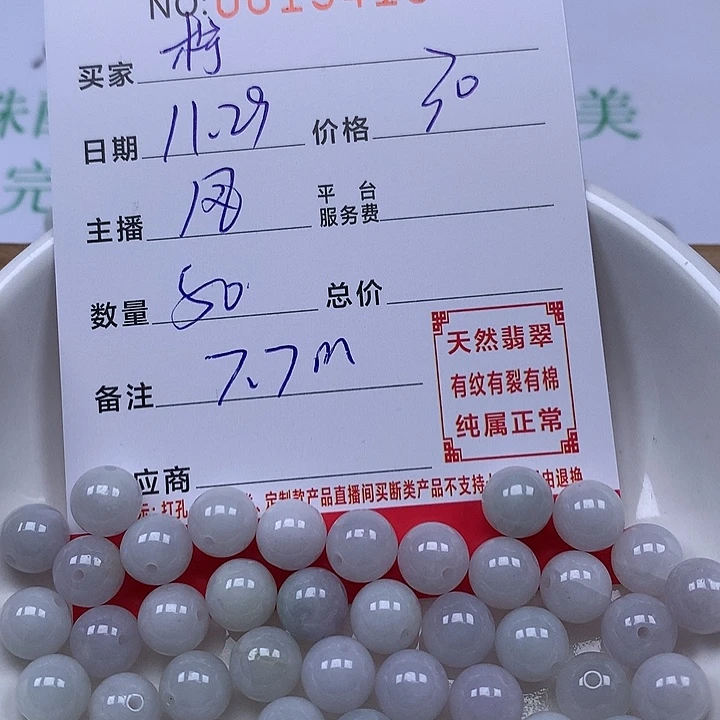 NO:
买家
日期 11.29 价格 30
主播 风 平台服务费
数量 50 总价
备注 7.7m
天然翡翠
有纹有裂有棉
纯属正常
应商
定制款产品直播间买断类产品不支持
由退换
打孔
美
完